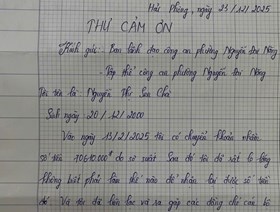 Hải Phòng, ngày 23/12/2025
THƯ CẢM ƠN
Kính gửi: Ban lãnh đạo công an phường Nguyễn
- Tập thể công an phường Nguyễn
Tôi tên là: Nguyễn Thị
Sinh ngày: 20/12/2000
Vào ngày 13/2/2025 tôi có chuyển khoản nhầm
số tiền do sơ suất. Sau đó tôi đã rất lo lắng
không biết phải làm thế nào để nhận lại được số tiền
đó. Và tôi đã liên lạc và gặp các đồng chí